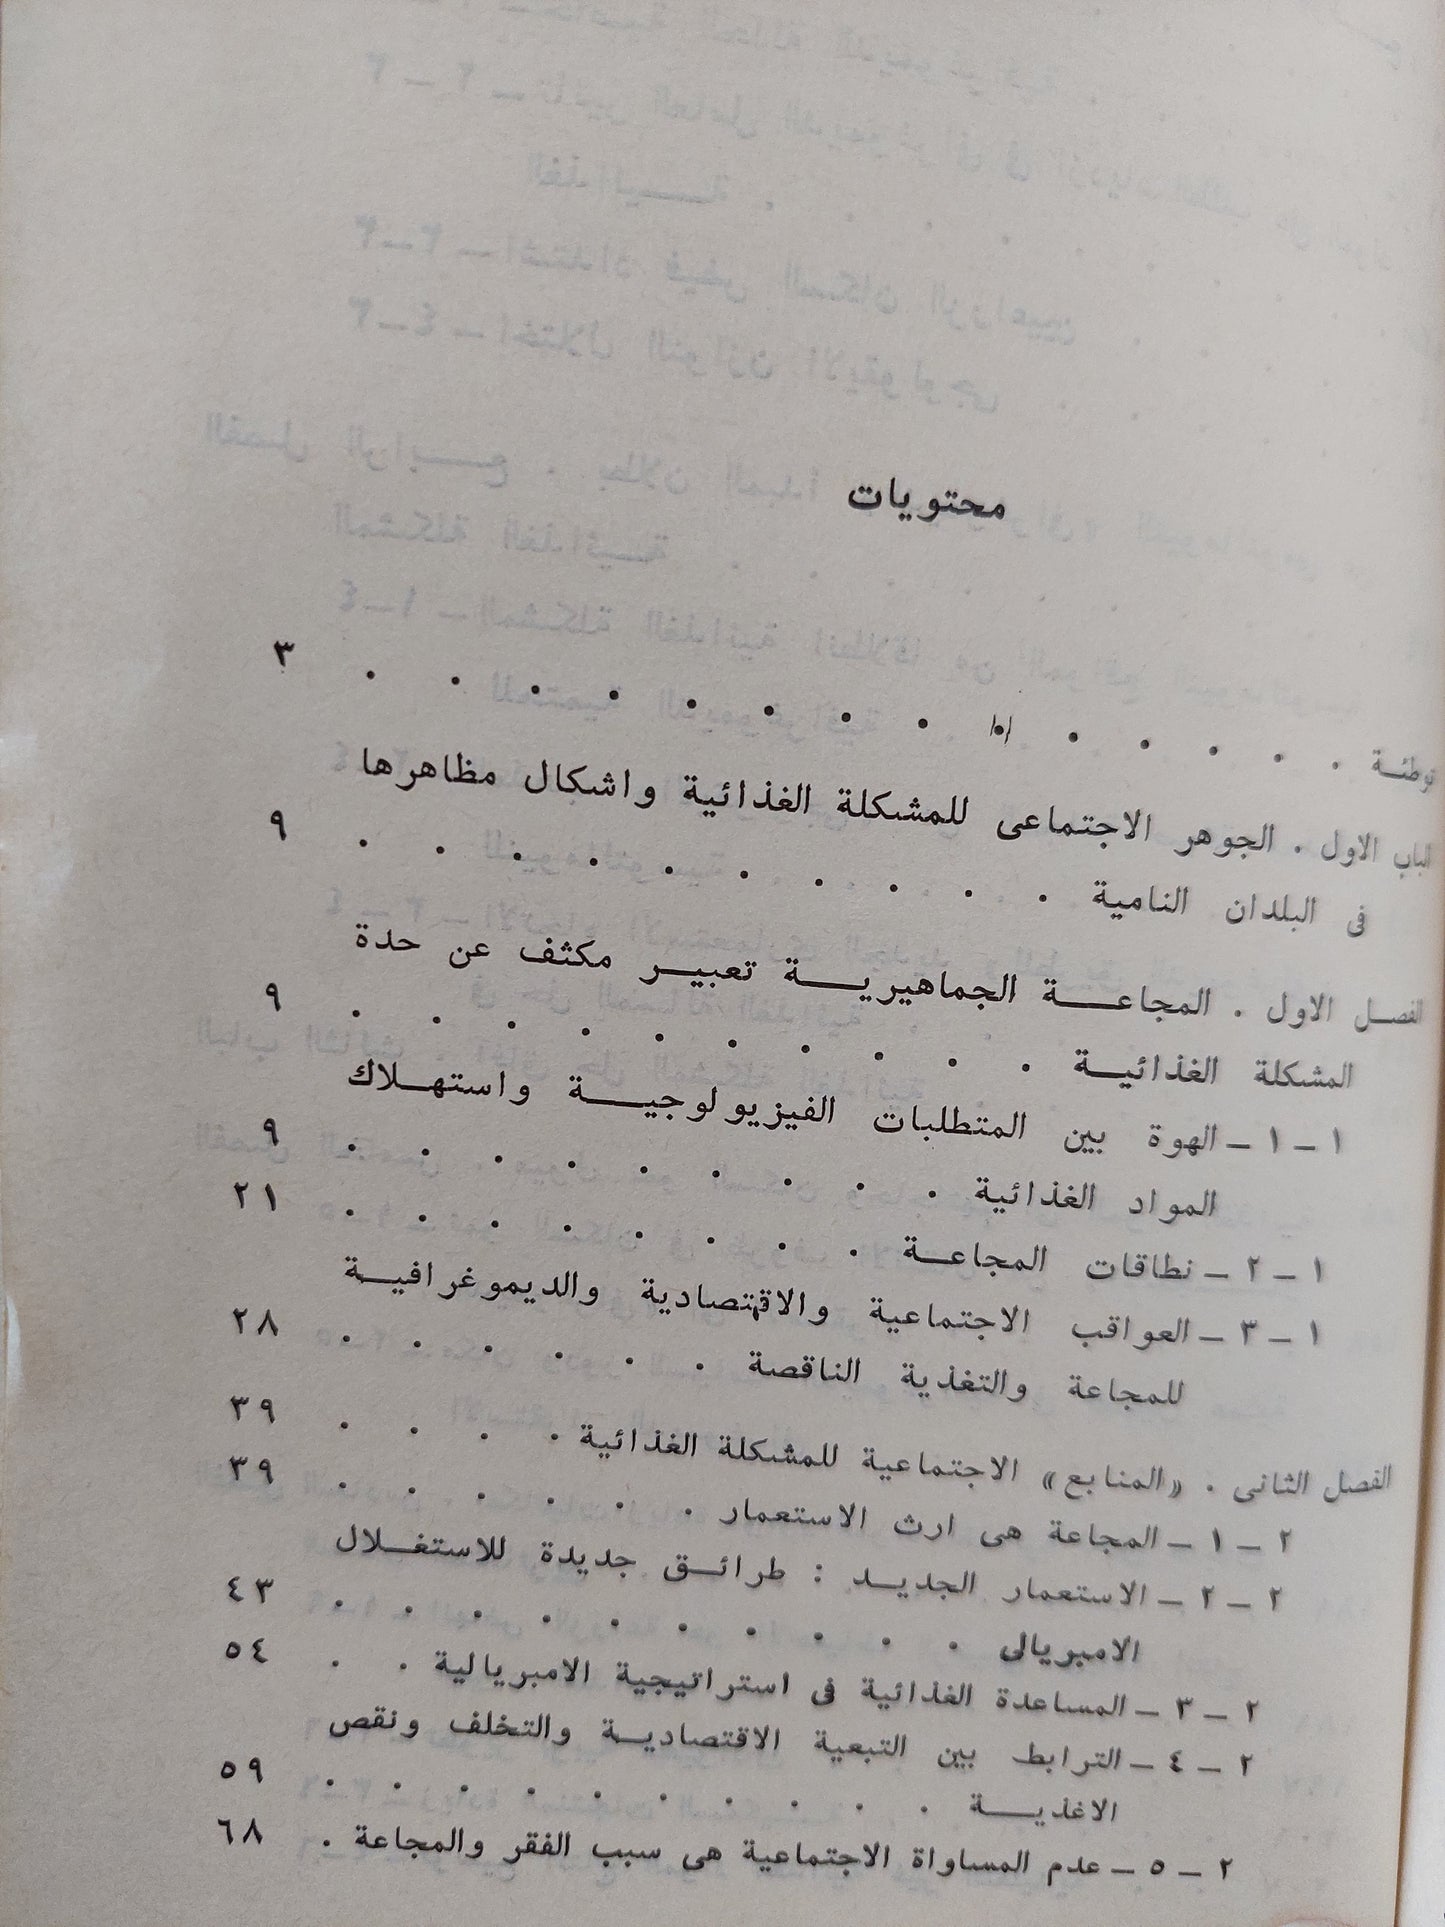 محتويات
توطئة . . . . . . . . . . . . . . ٣
الباب الاول . الجوهر الاجتماعى للمشكلة الغذائية واشكال مظاهرها
فى البلدان النامية . . . . . . . . . . ٩
الفصل الاول . المجاعة الجماهيرية تعبير مكثف عن حدة
المشكلة الغذائية . . . . . . . . . . ٩
١ – ١ – الهوة بين المتطلبات الفيزيولوجية واستهلاك
المواد الغذائية . . . . . . . . . ٩
١ – ٢ – نطاقات المجاعة . . . . . . . . ٢١
١ – ٣ – العواقب الاجتماعية والاقتصادية والديموغرافية
للمجاعة والتغذية الناقصة . . . . . . ٢٨
الفصل الثانى . «المنابع» الاجتماعية للمشكلة الغذائية . . . . ٣٩
٢ – ١ – المجاعة هى ارث الاستعمار . . . . . . ٣٩
٢ – ٢ – الاستعمار الجديد : طرائق جديدة للاستغلال
الامبريالى . . . . . . . . . . ٤٣
٢ – ٣ – المساعدة الغذائية فى استراتيجية الامبريالية . . ٥٤
٢ – ٤ – الترابط بين التبعية الاقتصادية والتخلف ونقص
الاغذية . . . . . . . . . . ٥٩
٢ – ٥ – عدم المساواة الاجتماعية هى سبب الفقر والمجاعة . ٦٨